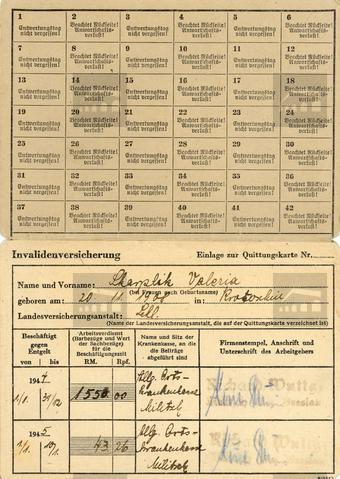 1 2 3 4 5 6
Entwertungstag nicht vergessen! Beachtet Rückseite! Anwartschaftsverlust! Entwertungstag nicht vergessen! Beachtet Rückseite! Anwartschaftsverlust! Entwertungstag nicht vergessen! Beachtet Rückseite! Anwartschaftsverlust!
7 8 9 10 11 12
Entwertungstag nicht vergessen! Beachtet Rückseite! Anwartschaftsverlust! Entwertungstag nicht vergessen! Beachtet Rückseite! Anwartschaftsverlust! Entwertungstag nicht vergessen! Beachtet Rückseite! Anwartschaftsverlust!
13 14 15 16 17 18
Entwertungstag nicht vergessen! Beachtet Rückseite! Anwartschaftsverlust! Entwertungstag nicht vergessen! Beachtet Rückseite! Anwartschaftsverlust! Entwertungstag nicht vergessen! Beachtet Rückseite! Anwartschaftsverlust!
19 20 21 22 23 24
Entwertungstag nicht vergessen! Beachtet Rückseite! Anwartschaftsverlust! Entwertungstag nicht vergessen! Beachtet Rückseite! Anwartschaftsverlust! Entwertungstag nicht vergessen! Beachtet Rückseite! Anwartschaftsverlust!
25 26 27 28 29 30
Entwertungstag nicht vergessen! Beachtet Rückseite! Anwartschaftsverlust! Entwertungstag nicht vergessen! Beachtet Rückseite! Anwartschaftsverlust! Entwertungstag nicht vergessen! Beachtet Rückseite! Anwartschaftsverlust!
31 32 33 34 35 36
Entwertungstag nicht vergessen! Beachtet Rückseite! Anwartschaftsverlust! Entwertungstag nicht vergessen! Beachtet Rückseite! Anwartschaftsverlust! Entwertungstag nicht vergessen! Beachtet Rückseite! Anwartschaftsverlust!
37 38 39 40 41 42
Entwertungstag nicht vergessen! Beachtet Rückseite! Anwartschaftsverlust! Entwertungstag nicht vergessen! Beachtet Rückseite! Anwartschaftsverlust! Entwertungstag nicht vergessen! Beachtet Rückseite! Anwartschaftsverlust!
Invalidenversicherung Einlage zur Quittungskarte Nr.
Name und Vorname: Valeria
(bei Frauen auch Geburtsname)
geboren am: 20. 11. 1908 in:
Landesversicherungsanstalt:
(Name der Landesversicherungsanstalt, die auf der Quittungskarte verzeichnet ist)
Beschäftigt gegen Entgelt
von bis
Arbeitsverdienst (Barbezüge und Wert der Sachbezüge) für die Beschäftigungszeit
RM. Rpf.
Name und Sitz der Krankenkasse, an die die Beiträge abgeführt sind
Firmenstempel, Anschrift und Unterschrift des Arbeitgebers
1944
1/1. 31/12 1550 00
Allg. Orts-
krankenkasse
Militsch
1945
1/1. 43 26
Allg. Orts-
krankenkasse
Militsch